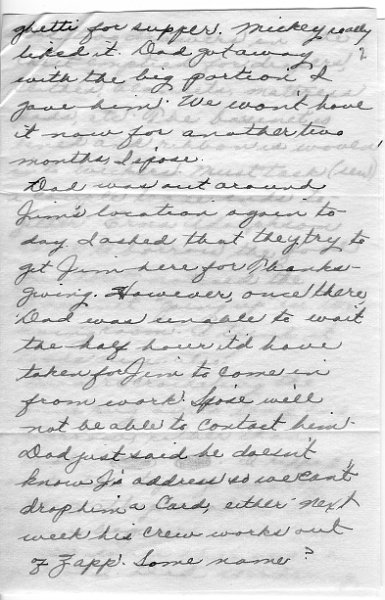 ghetti for supper. Mickey really
liked it. Dad got away
with the big portion I
gave him. We won't have
it now for another two
months, I s'pose.
Dad was out around
Jim's location again to
day. I asked that they try to
get Jim here for Thanks-
giving. However, once there,
Dad was unable to wait
the half hour it'd have
taken for Jim to come in
from work. S'pose we'll
not be able to contact him.
Dad just said he doesn't
know J's address so we can't
drop him a card, either. Next
week his crew works out
of Zapp. Some name?